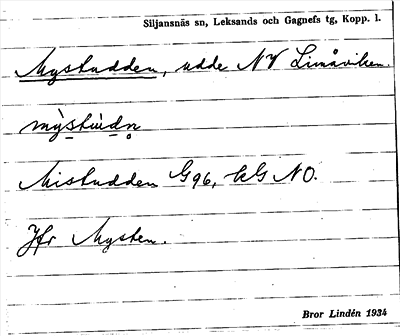 Siljansnäs sn, Leksands och Gagnefs tg, Kopp. l.
Mystudden, udde NV Limåviken.
mỳstùdn̥
Mistudden G96, kG NO.
Jfr Mysten.
Bror Lindén 1934